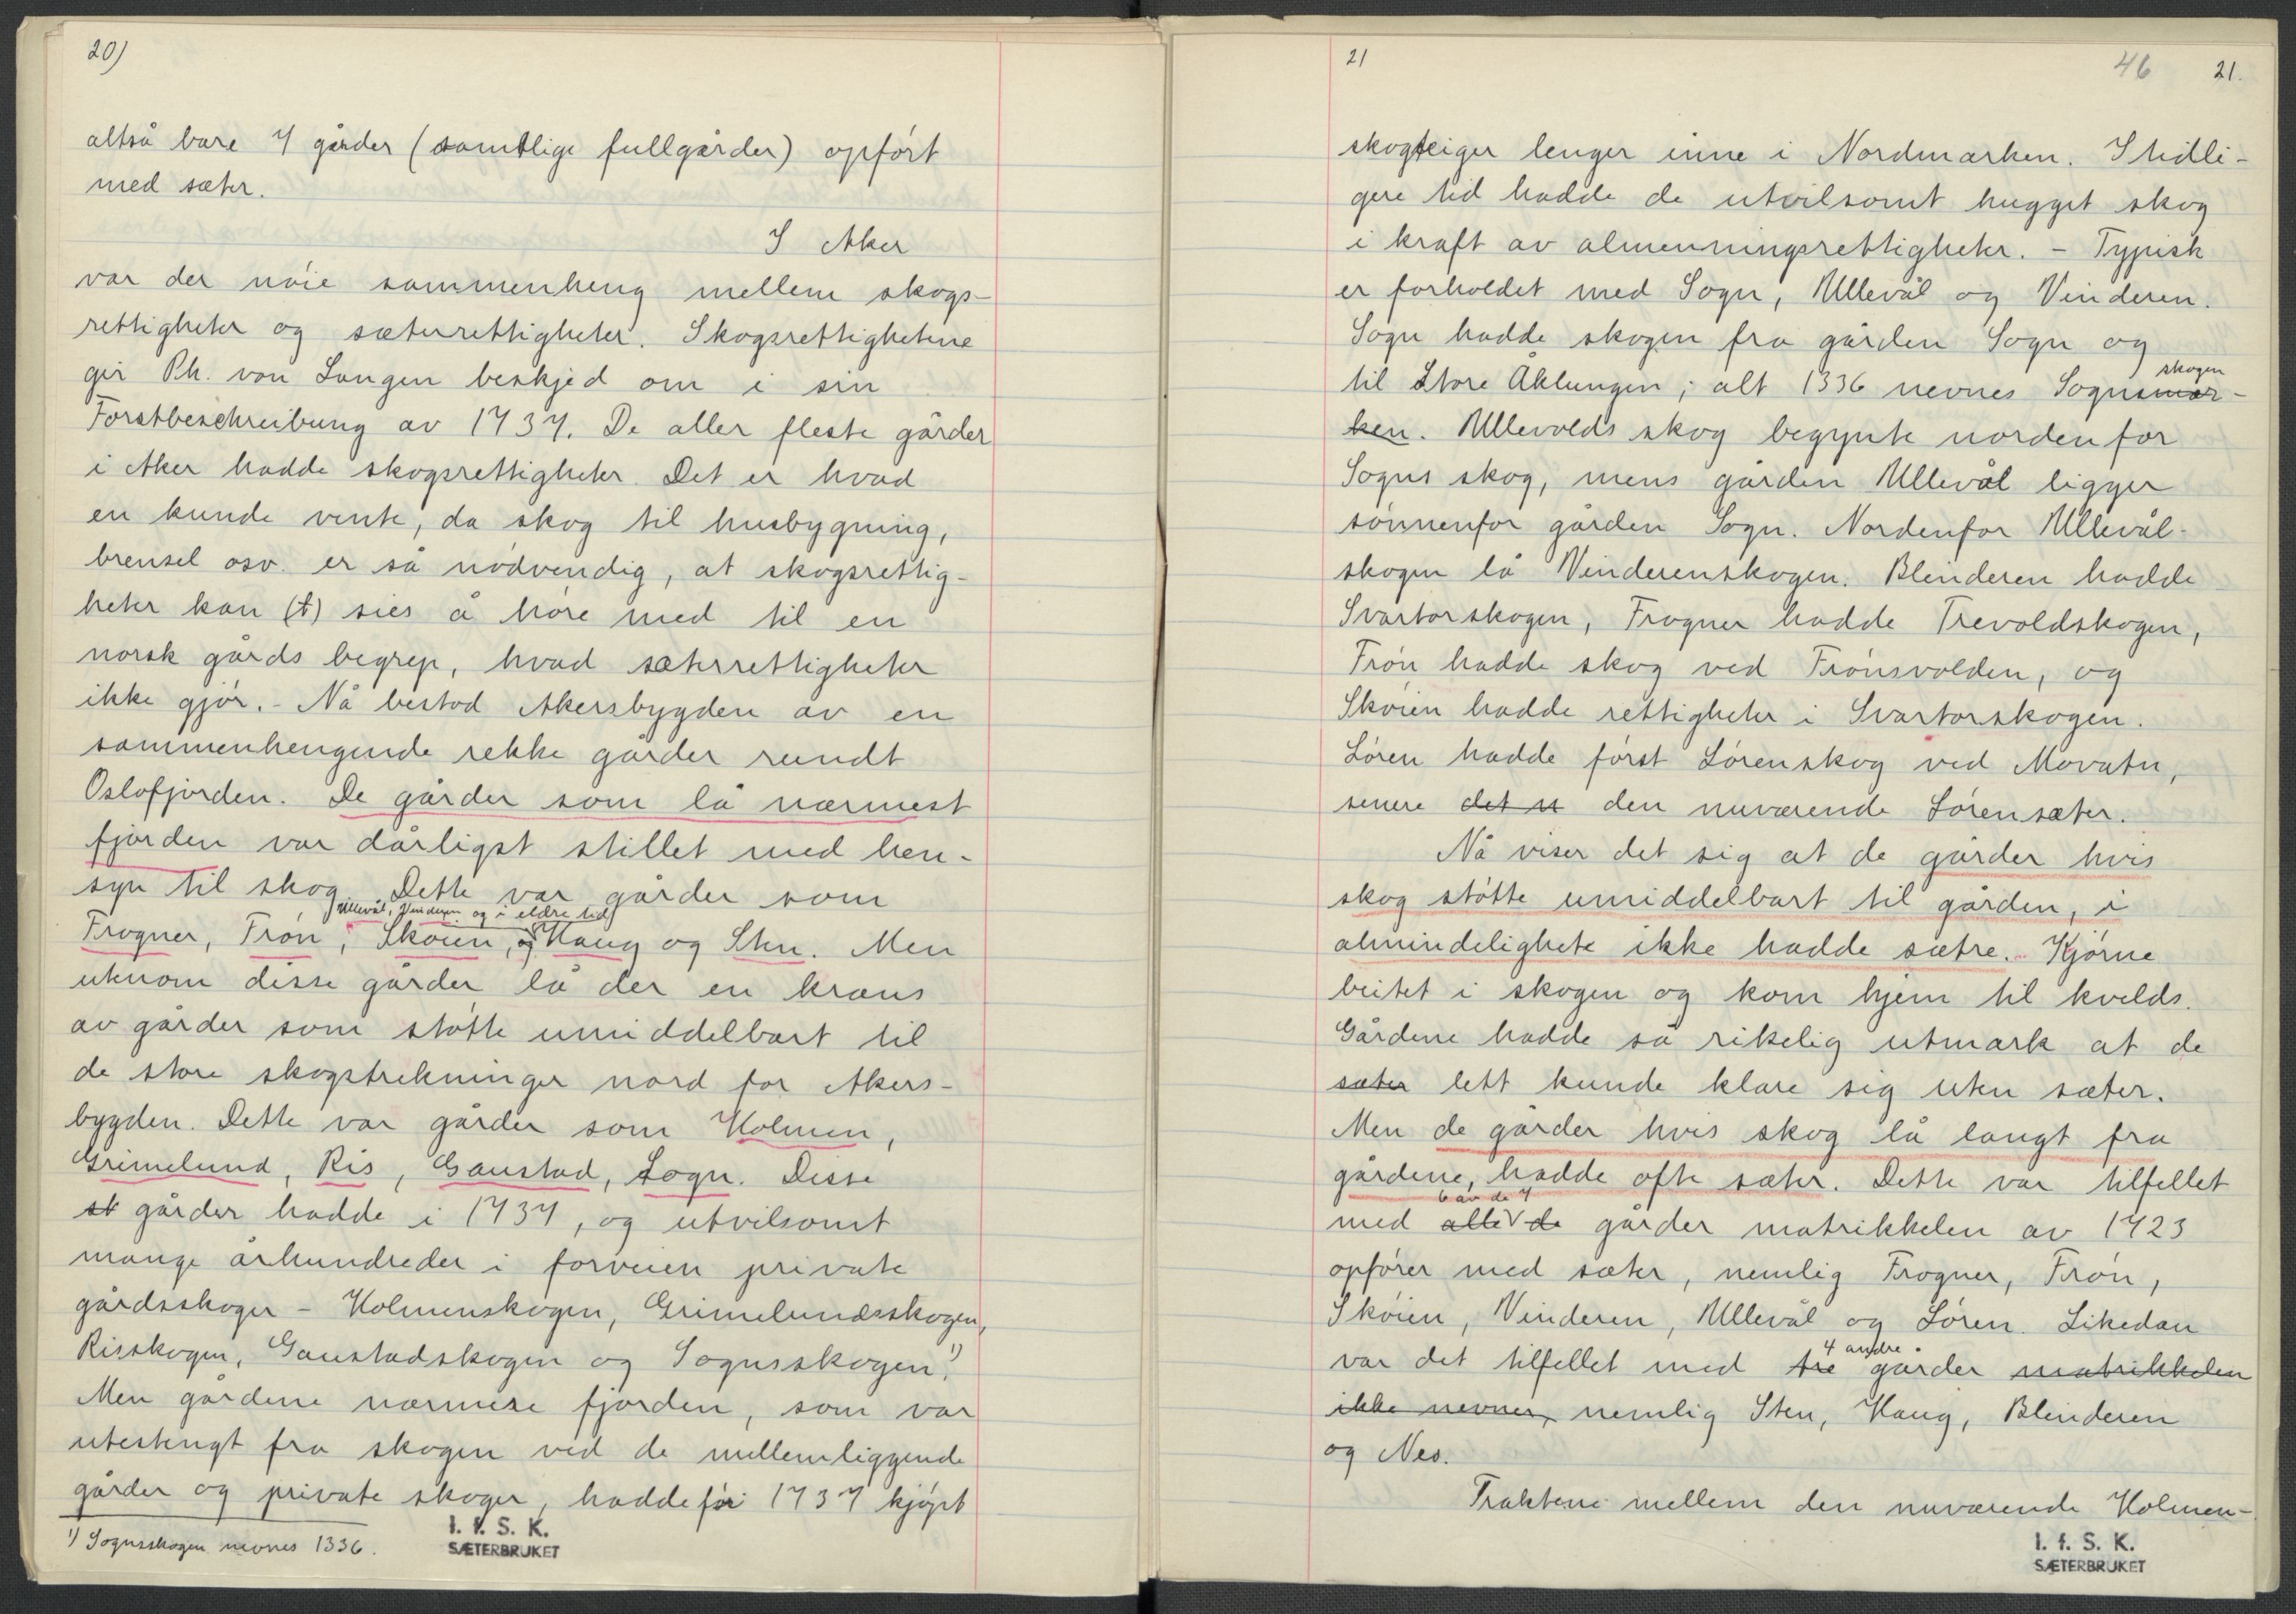 20)
altså bare 7 gårder (samtlige fullgårder) opført
med sæter.
I Aker
var der nøie sammenheng mellem skogs-
rettigheter og sæterrettigheter. Skogsrettighetene
gir Ph. von Langen beskjed om i sin
Forstbeschreibung av 1737. De aller fleste gårder
i Aker hadde skogsrettigheter. Det er hvad
en kunde vente, da skog til husbygning,
brensel osv. er så nødvendig, at skogsrettig-
heter kan (t) sies å høre med til en
norsk gårds begrep, hvad sæterrettigheter
ikke gjør. - Nå bestod Akersbygden av en
sammenhengende rekke gårder rundt
Oslofjorden. De gårder som lå nærmest
fjorden var dårligst stillet med hen-
syn til skog. Dette var gårder som
Ullevål, Vinderen og i eldre tid
Frogner, Frøn, Skøien, og Haug og Sten. Men
utenom disse gårder lå der en krans
av gårder som støtte umiddelbart til
de store skogstrekninger nord for Akers-
bygden. Dette var gårder som Holmen,
Grimelund, Ris, Gaustad, Sogn. Disse
st gårder hadde i 1737, og utvilsomt
mange århundreder i forveien private
gårdsskoger - Holmenskogen, Grimelundsskogen,
Risskogen, Gaustadskogen og Sognsskogen.1)
Men gårdene nærmere fjorden, som var
utestengt fra skogen ved de mellemliggende
gårder og private skoger, hadde før 1737 kjøpt
1) Sognsskogen nevnes 1336.
I. f. S. K.
SÆTERBRUKET
21
46
21.
skogteiger lenger inne i Nordmarken. I tidli-
gere tid hadde de utvilsomt hugget skog
i kraft av almenningsrettigheter. - Typisk
er forholdet med Sogn, Ullevål og Vinderen.
Sogn hadde skogen fra gården Sogn og
skogen
til Store Åklungen; alt 1336 nevnes Sognsmar-
ken. Ullevolds skog begynte nordenfor
Sogns skog, mens gården Ullevål ligger
sønnenfor gården Sogn. Nordenfor Ullevål-
skogen lå Vinderenskogen. Blinderen hadde
Svartorskogen, Frogner hadde Trevoldskogen,
Frøn hadde skog ved Frønsvolden, og
Skøien hadde rettigheter i Svartorskogen.
Løren hadde først Lørenskog ved Movatn,
senere det n den nuværende Lørensæter.
Nå viser det sig at de gårder hvis
skog støtte umiddelbart til gården, i
almindelighete ikke hadde sætre. Kjørne
beitet i skogen og kom hjem til kvelds.
Gårdene hadde så rikelig utmark at de
sæter lett kunde klare sig uten sæter.
Men de gårder hvis skog lå langt fra
gårdene, hadde ofte sæter. Dette var tilfellet
6 av de 7
med alle de gårder matrikkelen av 1723
opfører med sæter, nemlig Frogner, Frøn,
Skøien, Vinderen, Ullevål og Løren. Likedan
4 andre
var det tilfellet med tre gårder matrikkelen
ikke nevner, nemlig Sten, Haug, Blinderen
og Nes.
Traktene mellem den nuværende Holmen-
I. f. S. K.
SÆTERBRUKET